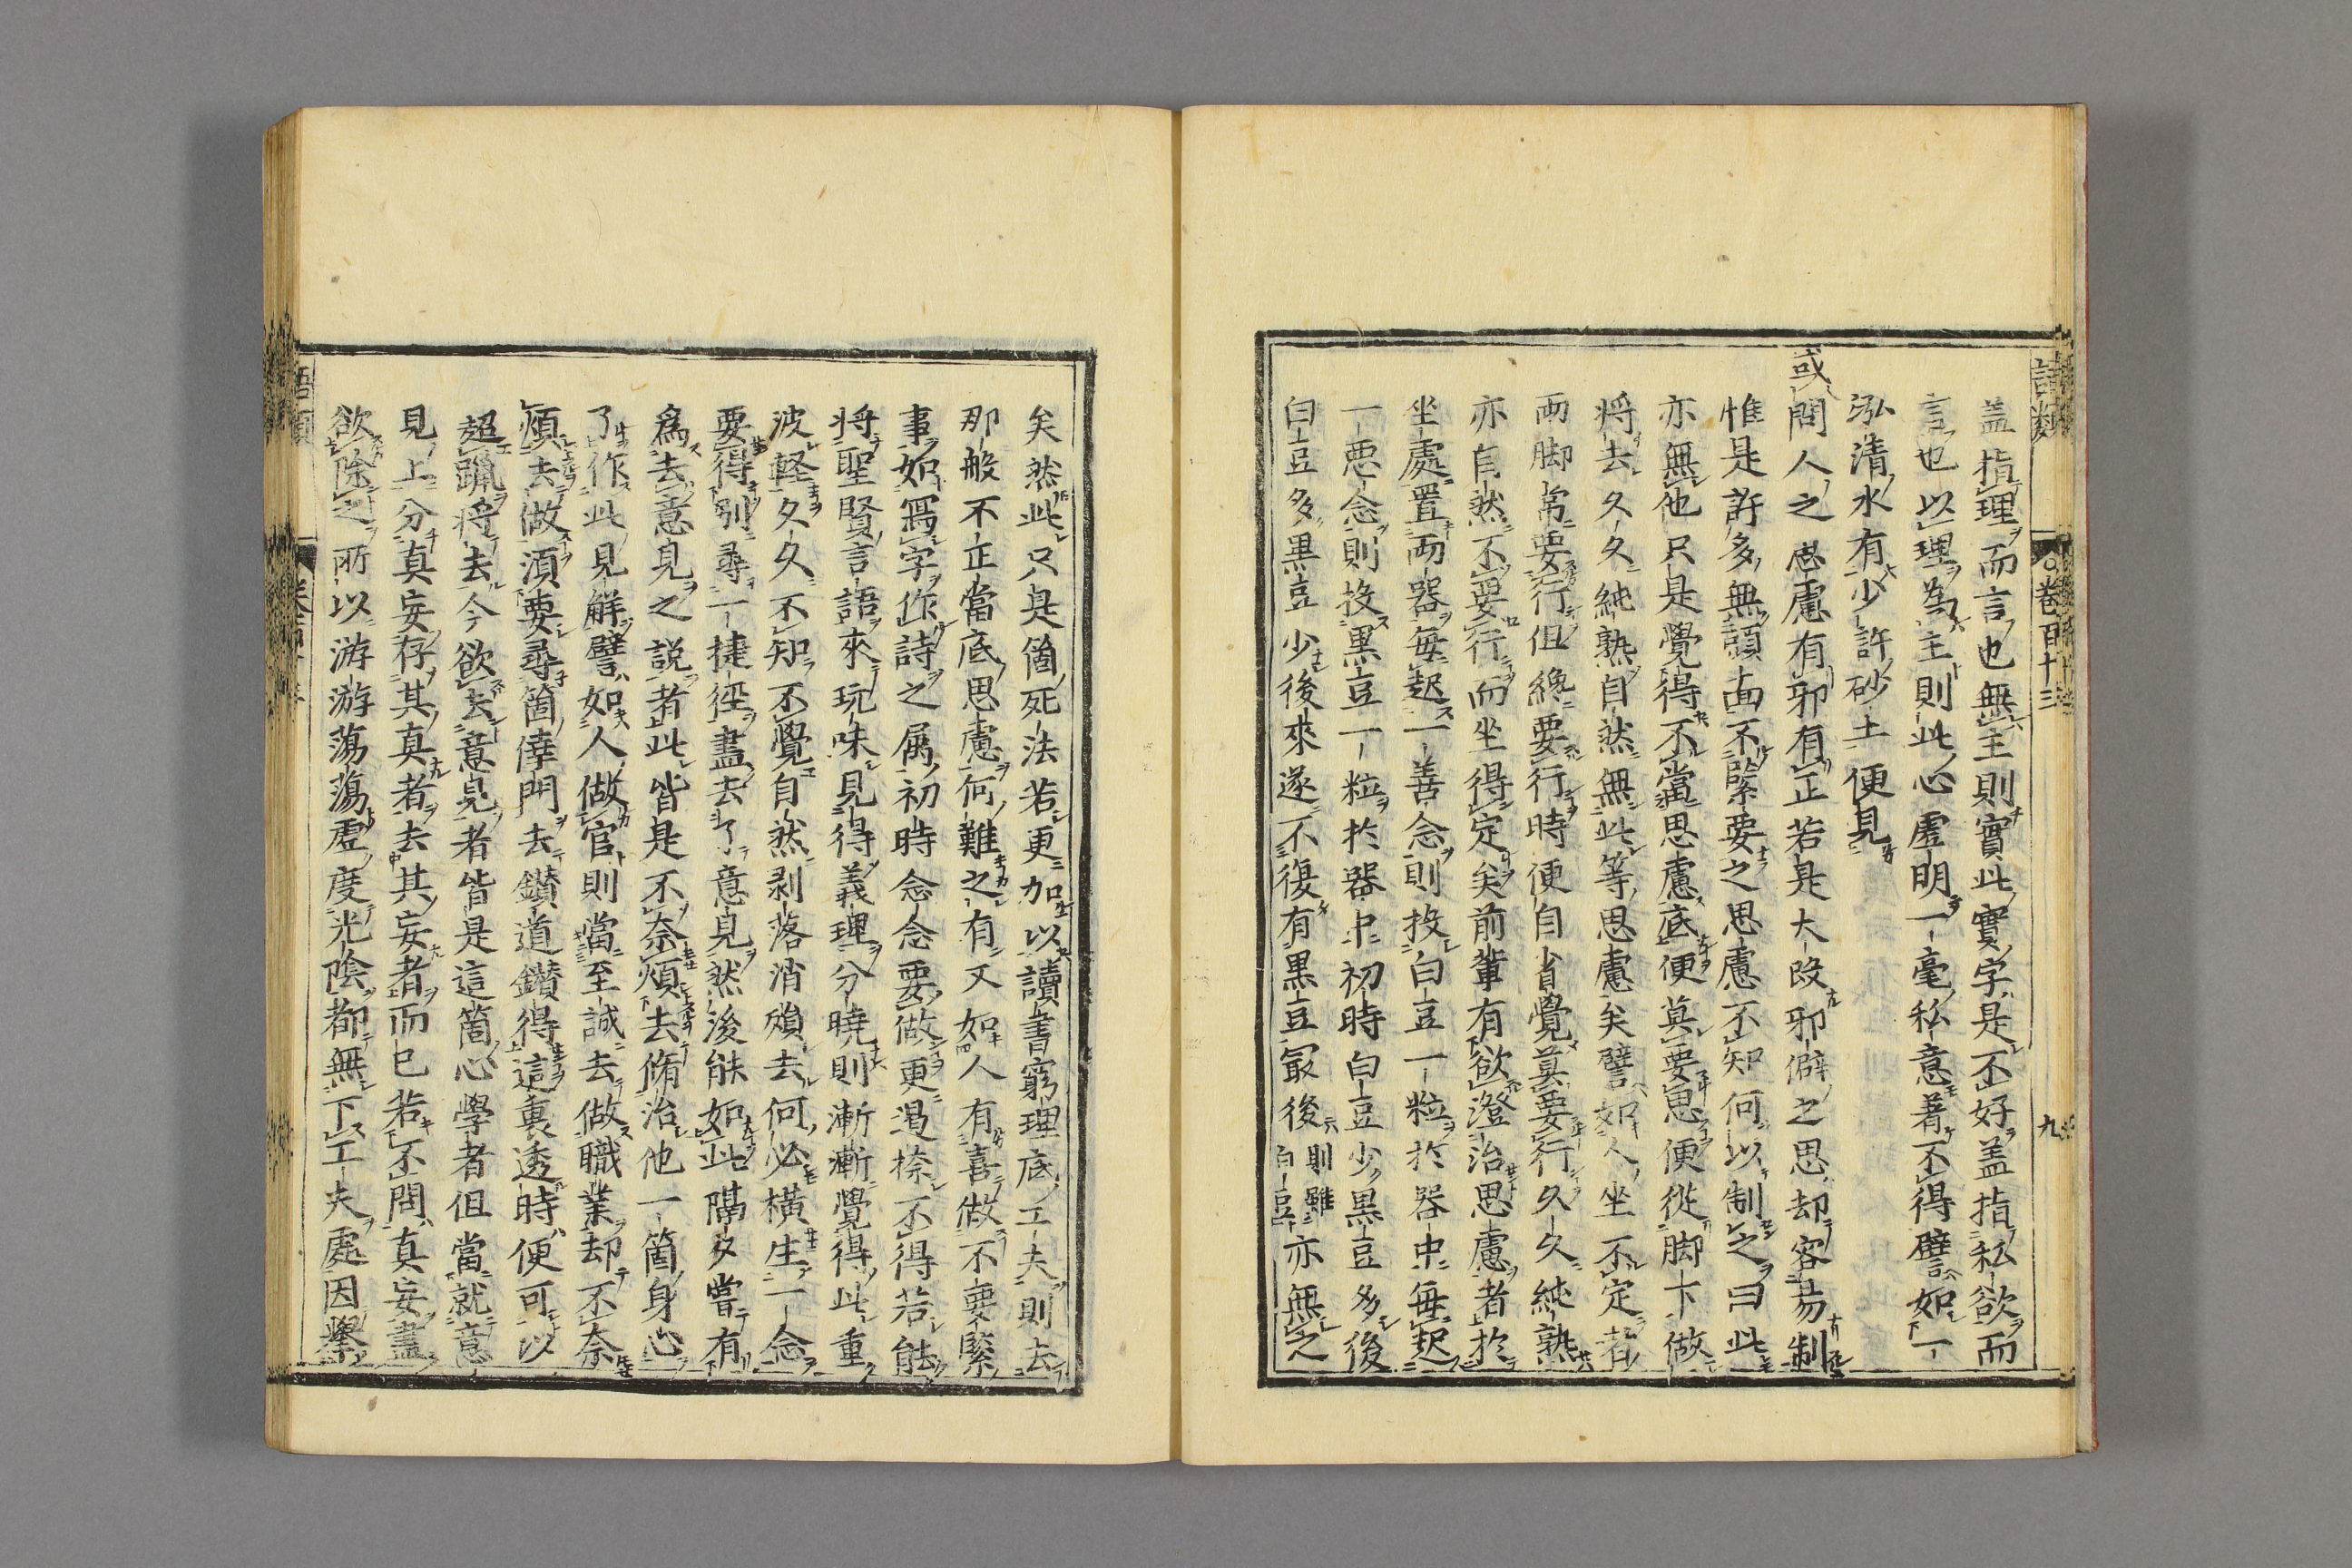 語類 卷百十三 九
盖指理而言也無主則實此實字是不好盖指私欲而
言也以理為主則此心虛明一毫私意著不得譬如一
泓清水有少許砂土便見
或問人之思慮有邪有正若是大段邪僻之思却容易制
惟是許多無頭面不緊要之思慮不知何以制之曰此
亦無他只是覺得不當思慮底便莫要思便從脚下做
将去久久純熟自然無此等思慮矣譬如人坐不定者
兩脚常要行但纔要行時便自省覺莫要行久久純熟
亦自然不要行而坐得定矣前輩有欲澄治思慮者於
坐處置兩器每起一善念則投白豆一粒於器中每起
一悪念則投黒豆一粒於器中初時白豆少黒豆多後
白豆多黒豆少後來遂不復有黒豆冣後則雖白豆亦無之
矣然此只是箇死法若更加以讀書窮理底工夫則去
那般不正當底思慮何難之有又如人有喜做不要緊
事如寫字作詩之属初時念念要做更遏捺不得若能
将聖賢言語來玩味見得義理分曉則漸漸覺得此重
彼軽久久不知不覺自然剥落消殞去何必横生一念
要得別尋一捷徑盡去了意見然後能如此隔夕嘗有
爲去意見之説者此皆是不奈煩去脩治他一箇身心
了作此見解譬如人做官則當至誠去做職業却不奈
煩去做須要尋箇倖門去鑚道鑚得這裏透時便可以
超躐将去今欲去意見者皆是這箇心學者但當就意
見上分真妄存其真者去其妄者而已若不問真妄盡
欲除之所以游游蕩蕩虛度光陰都無下工夫處因擧